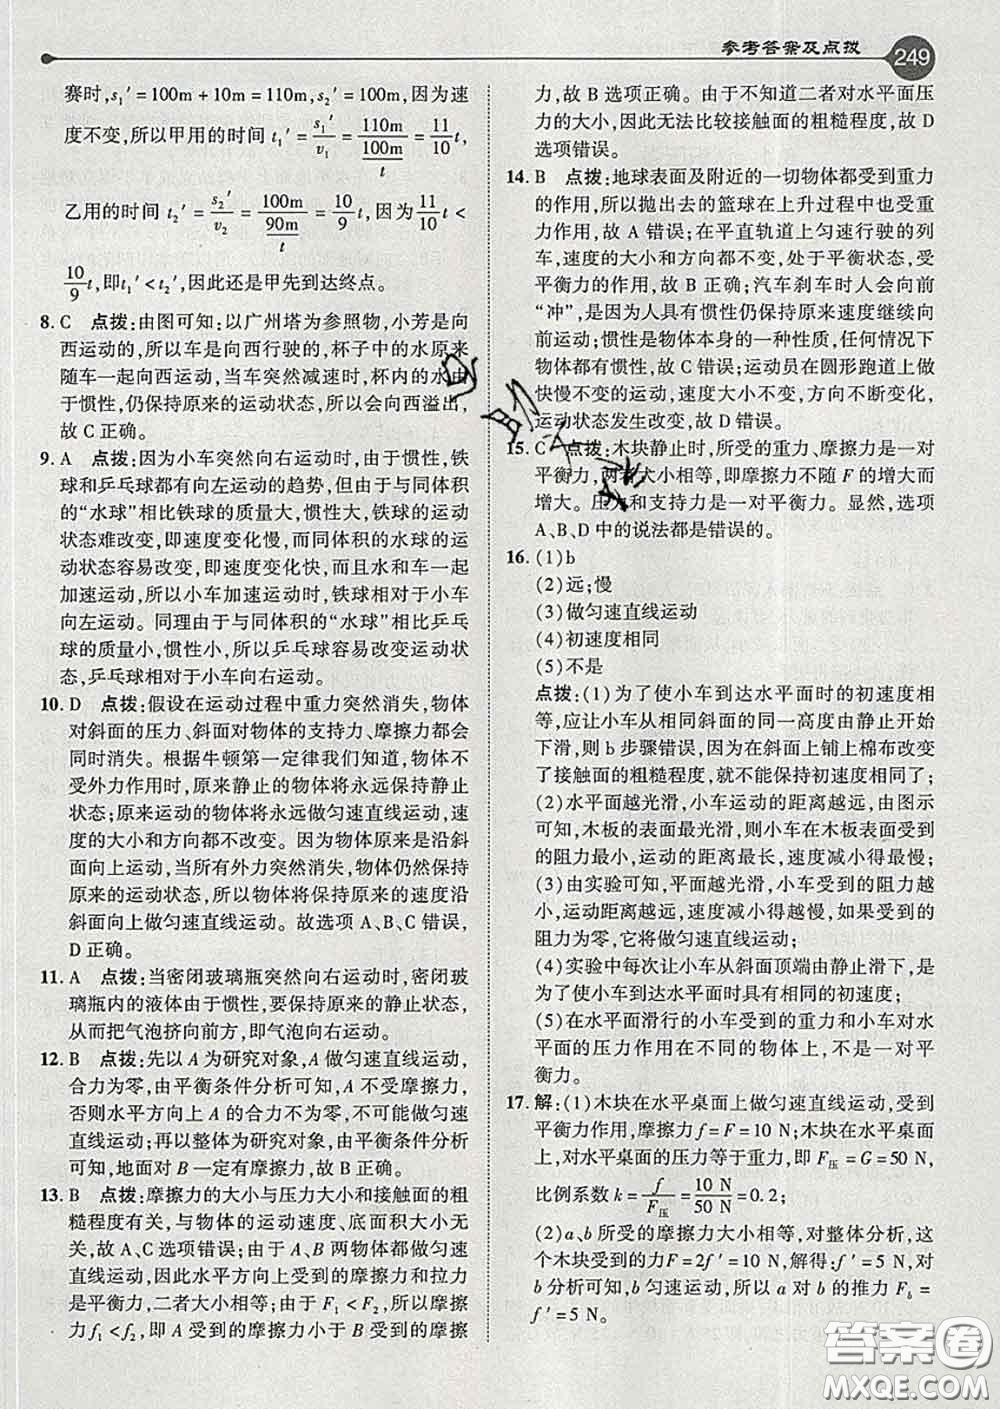 参考答案及点拨
249
赛时,s₁′=100m+10m=110m,s₂′=100m,因为速
度不变,所以甲用的时间 t₁′=s₁′/v₁=110m/(100m/t)=11/10 t,
乙用的时间 t₂′=s₂′/v₂=100m/(90m/t)=10/9 t,因为11/10 t<
10/9 t,即t₁′<t₂′,因此还是甲先到达终点。
8. C 点拨:由图可知:以广州塔为参照物,小芳是向
西运动的,所以车是向西行驶的,杯子中的水原来
随车一起向西运动,当车突然减速时,杯内的水由
于惯性,仍保持原来的运动状态,所以会向西溢出,
故 C 正确。
9. A 点拨:因为小车突然向右运动时,由于惯性,铁
球和乒乓球都有向左运动的趋势,但由于与同体积
的“水球”相比铁球的质量大,惯性大,铁球的运动
状态难改变,即速度变化慢,而同体积的水球的运
动状态容易改变,即速度变化快,而水和车一起
加速运动,所以小车加速运动时,小车上的铁球相对于小车
向左运动。同理由于与同体积的“水球”相比乒乓
球的质量小,惯性小,所以乒乓球容易改变运动状
态,乒乓球相对于小车向右运动。
10. D 点拨:假设在运动过程中重力突然消失,物体
对斜面的压力、斜面对物体的支持力、摩擦力都会
同时消失。根据牛顿第一定律我们知道,物体不
受外力作用时,原来静止的物体将永远保持静止
状态;原来运动的物体将永远做匀速直线运动,
速度的大小和方向都不改变。因为物体是沿斜
面向上运动,当所有外力突然消失,物体仍然保持
原来的运动状态,所以物体将保持原来的速度沿
斜面向上做匀速直线运动。故选项 A、B、C 错误,
D 正确。
11. A 点拨:当密闭玻璃瓶突然向右运动时,密闭玻
璃瓶内的液体由于惯性,要保持原来的静止状态,
从而把气泡挤向前方,即气泡向右运动。
12. B 点拨:先以 A 为研究对象,A 做匀速直线运动,
合力为零,由平衡条件分析可知,A 不受摩擦力,
否则水平方向上 A 的合力不为零,不可能做匀速
直线运动;再以整体为研究对象,由平衡条件分析
可知,地面对 B 一定有摩擦力,故 B 正确。
13. B 点拨:摩擦力的大小与压力大小和接触面的粗
糙程度有关,与物体的运动速度、底面积大小无
关,故 A、C 选项错误;由于 A、B 两物体都做匀速
直线运动,因此水平方向上受到的摩擦力和拉力
是平衡力,二者大小相等;由于 F₁<F₂,所以摩擦
力f₁<f₂,即 A 受到的摩擦力小于 B 受到的摩擦
力,故 B 选项正确。由于不知道二者对水平面压
力的大小,因此无法比较接触面的粗糙程度,故 D
选项错误。
14. B 点拨:地球表面及附近的一切物体都受到重力
的作用,所以抛出去的篮球在上升过程中也受重
力作用,故 A 错误;在平直轨道上匀速行驶的列
车,速度的大小和方向都不变,处于平衡状态,受
平衡力的作用,故 B 正确;汽车刹车时人会向前
“冲”,是因为人具有惯性仍保持原来速度继续向
前运动;惯性是物体本身的一种性质,任何情况下
物体都有惯性,故 C 错误;运动员在圆形跑道上做
快慢不变的运动,速度大小不变,方向不断变化,
运动状态发生改变,故 D 错误。
15. C 点拨:木块静止时,所受的重力、摩擦力是一对
平衡力,两者大小相等,即摩擦力不随 F 的增大而
增大。压力和支持力是一对平衡力。显然,选项
A、B、D 中的说法都是错误的。
16. (1)b
(2)远;慢
(3)做匀速直线运动
(4)初速度相同
(5)不是
点拨:(1)为了使小车到达水平面时的初速度相
等,应让小车从相同斜面的同一高度由静止开始
下滑,则 b 步骤错误,因为在斜面上铺上棉布改变
了接触面的粗糙程度,就不能保持初速度相同了;
(2)水平面越光滑,小车运动的距离越远,由图示
可知,木板的表面最光滑,则小车在木板表面受到
的阻力最小,运动的距离最长,速度减小得最慢;
(3)由实验可知,平面越光滑,小车受到的阻力越
小,运动距离越远,速度减小得越慢,如果受到的
阻力为零,它将做匀速直线运动;
(4)实验中每次让小车从斜面顶端由静止滑下,是
为了使小车到达水平面时具有相同的初速度;
(5)在水平面滑行的小车受到的重力和小车对水
平面的压力作用在不同的物体上,不是一对平
衡力。
17. 解:(1)木块在水平桌面上做匀速直线运动,受到
平衡力作用,摩擦力 f=F=10 N;木块在水平桌面
上,对水平桌面的压力等于重力,即 F压=G=50 N,
比例系数 k=f/F压=10 N/50 N=0.2;
(2)a、b 所受的摩擦力大小相等,对整体分析,这
个木块受到的力F=2f′=10 N,解得:f′=5 N,对
b 分析可知,b 匀速运动,所以 a 对 b 的推力 F_b=
f′=5 N。
答案圈
MXQE.COM